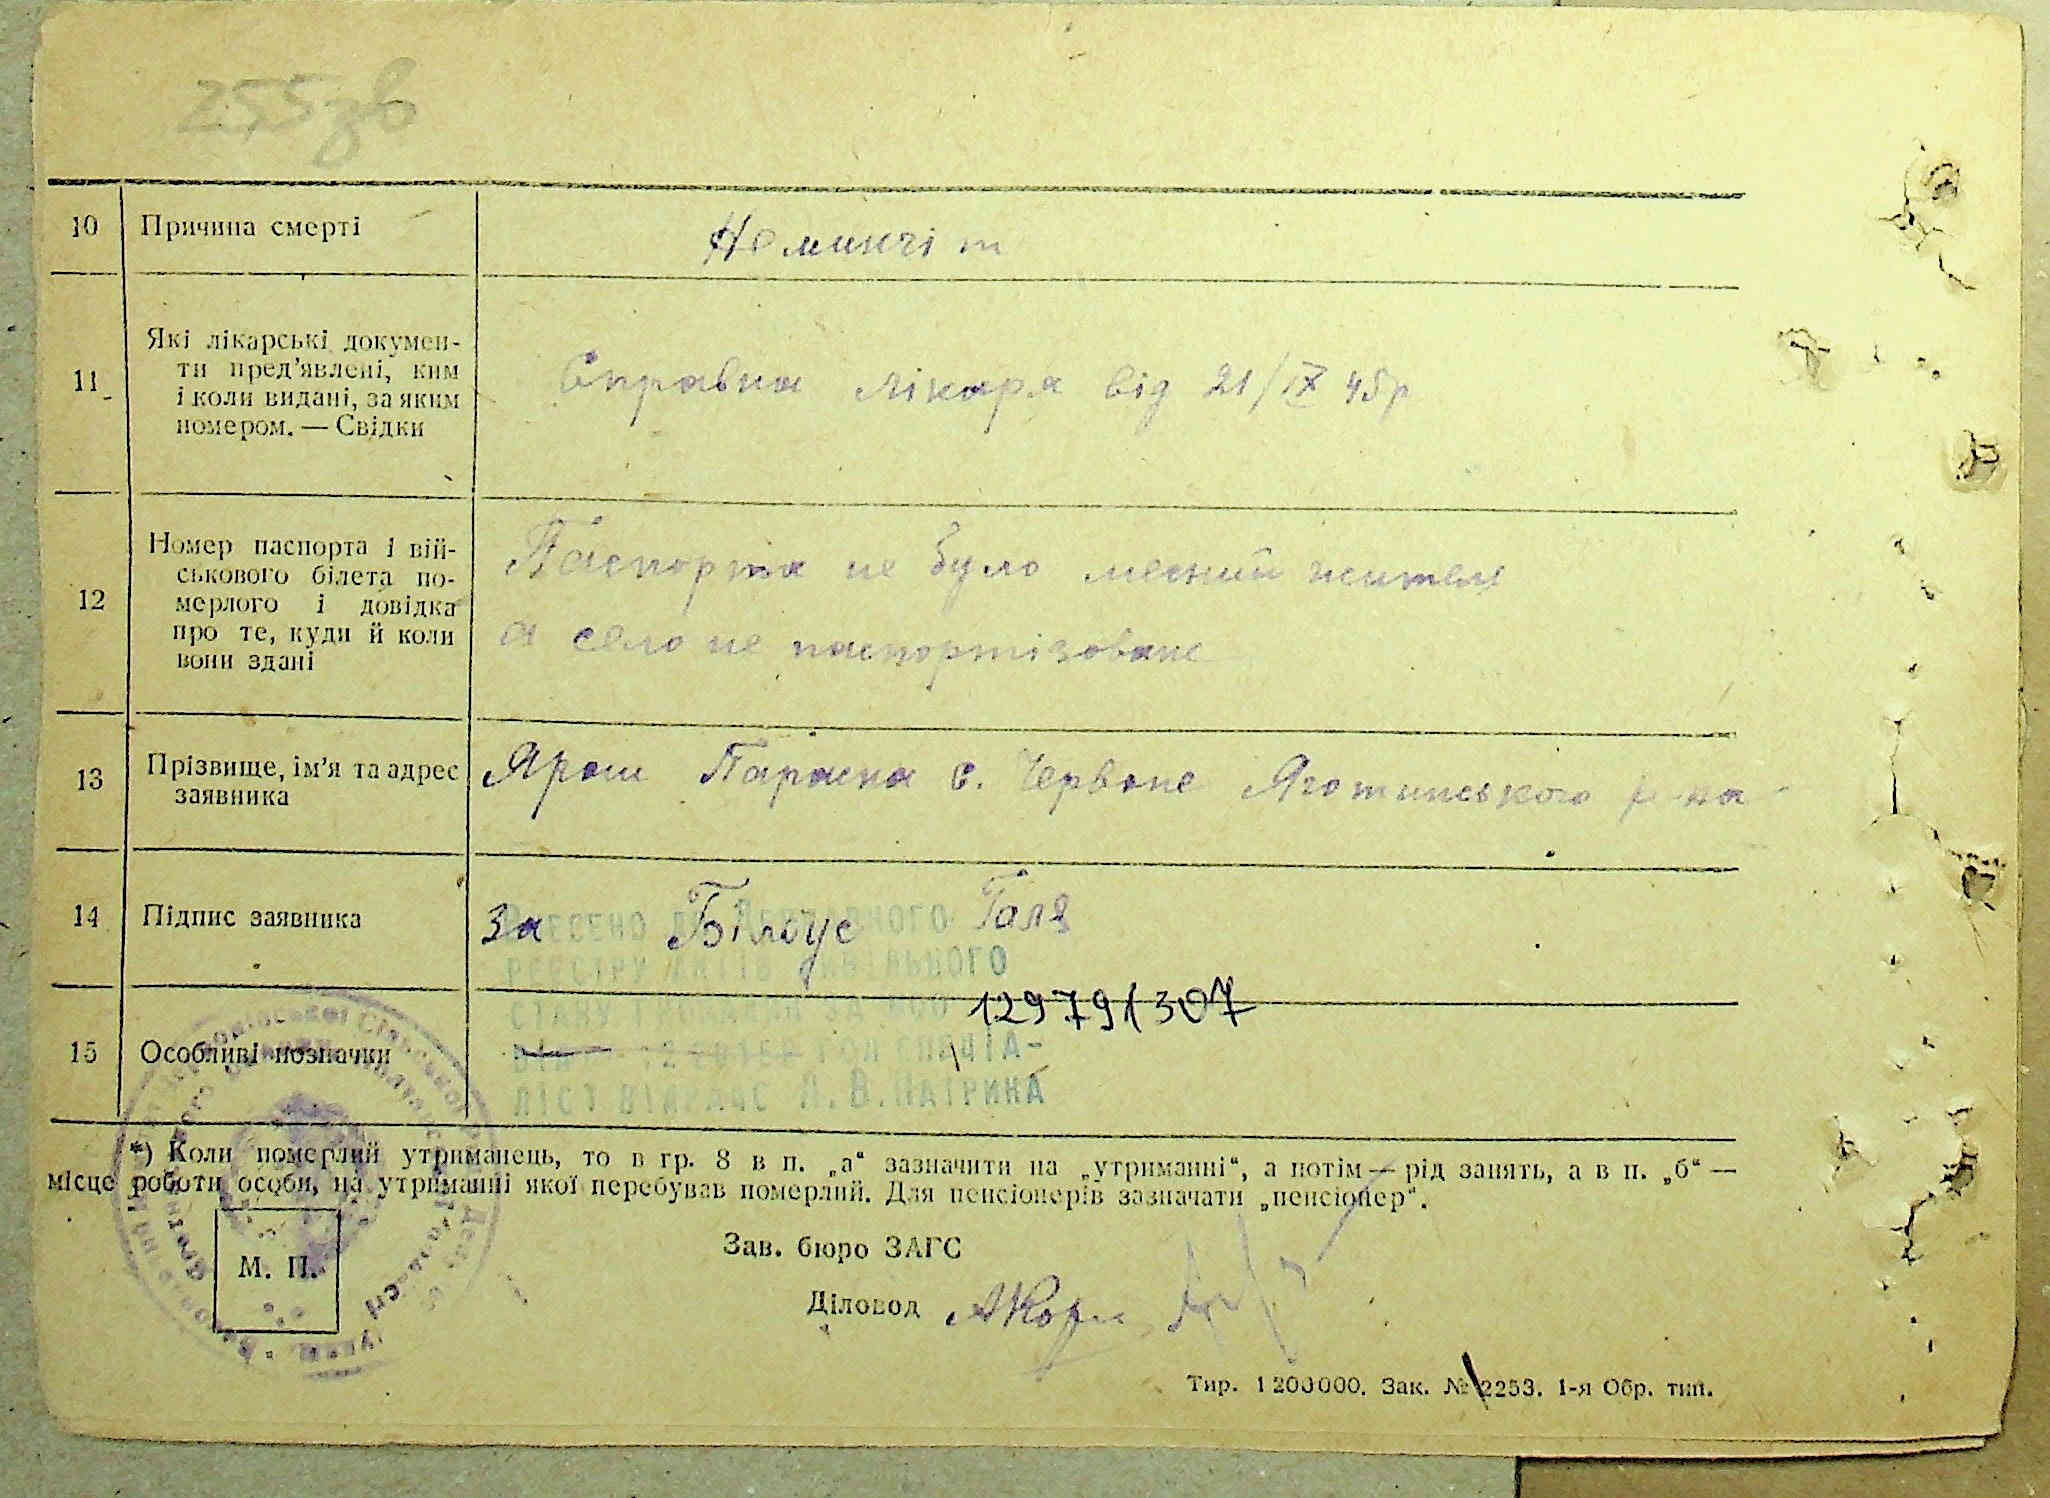 255зв
10 Причина смерті
Які лікарські докумен-
ти пред'явлені, ким
11 і коли видані, за яким
номером. — Свідки
Справка лікаря від 21/IX 45р
Номер паспорта і вій-
ськового білета по-
12 мерлого і довідка
про те, куди й коли
вони здані
Паспорта не було месний жител
а село не паспортізоване
13 Прізвище, ім'я та адрес
заявника
Ярош Параска с. Червоне Яготинського р-на
14 Підпис заявника За Білоус Галя
ВНЕСЕНО ДО ДЕРЖАВНОГО
РЕЄСТРУ АКТІВ ЦИВІЛЬНОГО
СТАНУ ГРОМАДЯН ЗА 12979/307
15 Особливі позначки
СПЕЦІА-
ЛІСТ ВІДРАЦС Л. В. ПАТРИКА
*) Коли померлий утриманець, то в гр. 8 в п. „а“ зазначити на „утриманні“, а потім — рід занять, а в п. „б“ —
місце роботи особи, на утриманні якої перебував померлий. Для пенсіонерів зазначати „пенсіонер“.
М. П.
Зав. бюро ЗАГС
Діловод
Тир. 1200000. Зак. № 2253. 1-я Обр. тип.